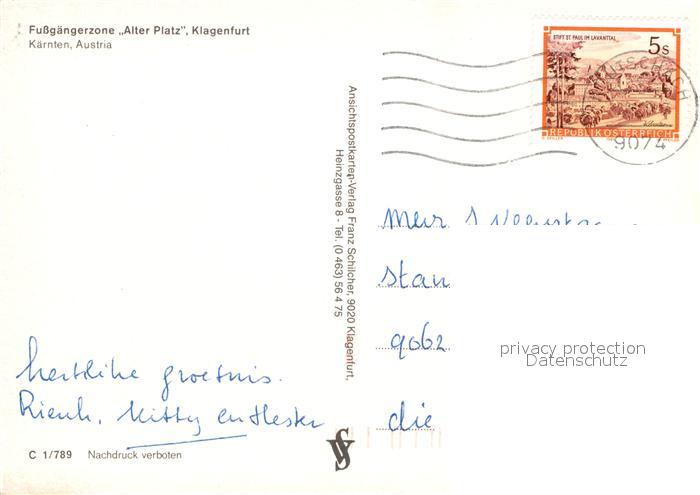 Fußgängerzone „Alter Platz”, Klagenfurt
Kärnten, Austria
STIFT ST. PAUL IM LAVANTTAL
5s
REPUBLIK ÖSTERREICH
9074
Ansichtspostkarten-Verlag Franz Schilcher, 9020 Klagenfurt,
Heinzgasse 8 - Tel. (0 463) 56 4 75
stan
privacy protection
Datenschutz
die
hertlike groetnis.
Rienk, Kitty en Hester
C 1/789 Nachdruck verboten